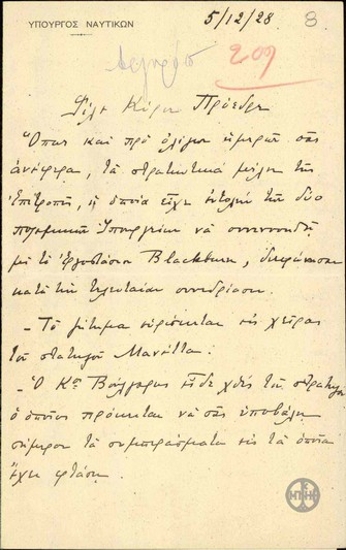 ΥΠΟΥΡΓΟΣ ΝΑΥΤΙΚΩΝ
5/12/28
8
209
Φίλε Κύριε Πρόεδρε
Όπως και προ ολίγων ημερών σας
ανέφερα, τα στρατιωτικά μέλη της
Επιτροπής, η οποία είχε εντολήν των δύο
πολεμικών Υπουργείων να συνεννοηθή
με το Εργοστάσιο Blackburn, διεφώνησαν
κατά την τελευταίαν συνεδρίασιν.
– Το ζήτημα ευρίσκεται εις χείρας
του στρατηγού Μανέττα.
– Ο Κος Βούλγαρης είδε χθες τον στρατηγό
ο οποίος πρόκειται να σας υποβάλη
σήμερον τα συμπεράσματα εις τα οποία
έχει φτάσει.